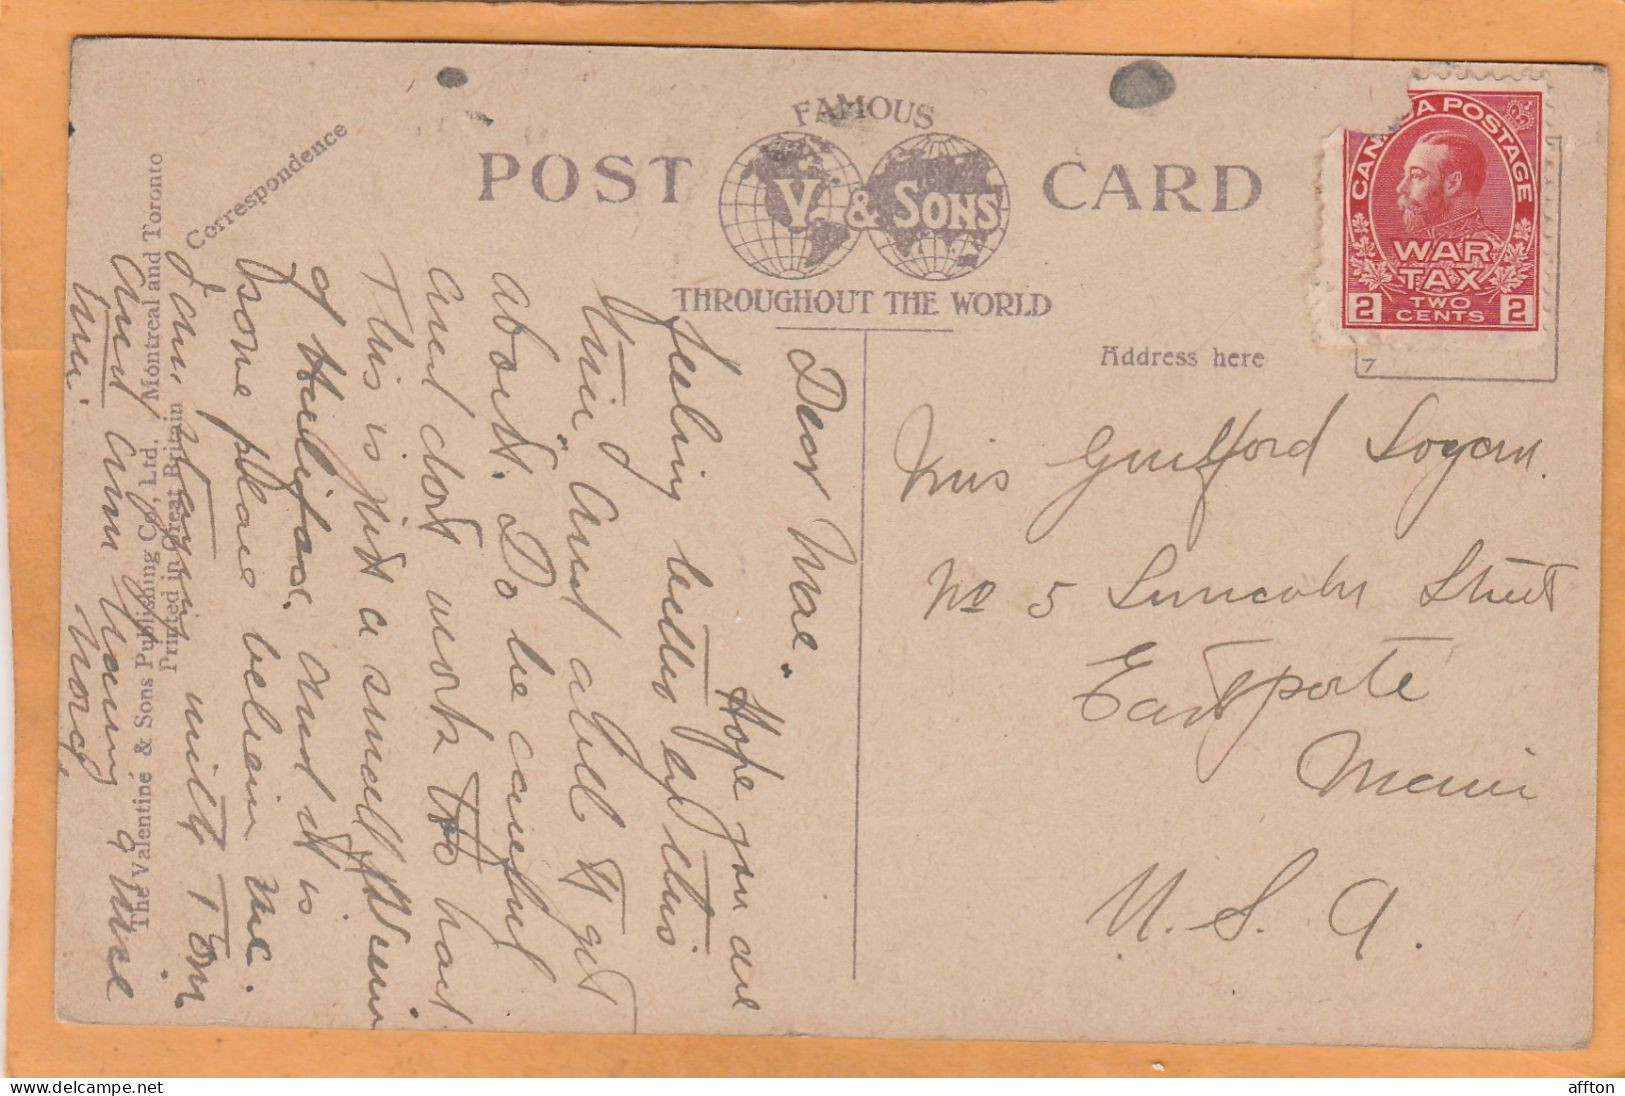 FAMOUS
POST CARD
V. & SONS
THROUGHOUT THE WORLD
Correspondence
Address here
CANADA POSTAGE
WAR
TAX
2 TWO CENTS 2
7
Dear Mae" Hope you are
feeling better by this
time and able to get
about. Do be careful
and dont work too hard
This is just a small view
of Halifax. and it is
some place believe me.
I am staying with Tom
and am having a nice
time.
The Valentine & Sons Publishing Co., Ltd. Montreal and Toronto
Printed in Great Britain
Guilford
No 5 Street
Eastporte
U. S. A.
affton